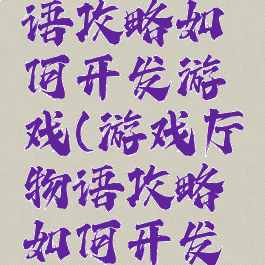 语攻略如
何开发游
戏(游戏厅
物语攻略
如何开发